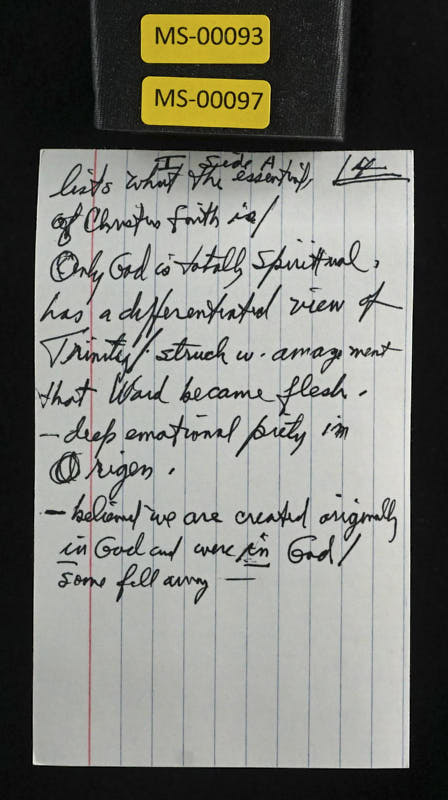 MS-00093
MS-00097
I Side A 4
lists what the essentials
of Christian faith is/
Only God is totally spiritual,
has a differentiated view of
Trinity/. struck w. amazement
that Word became flesh.
- deep emotional piety in
Origen.
- believed we are created originally
in God and were in God/
Some fell away —